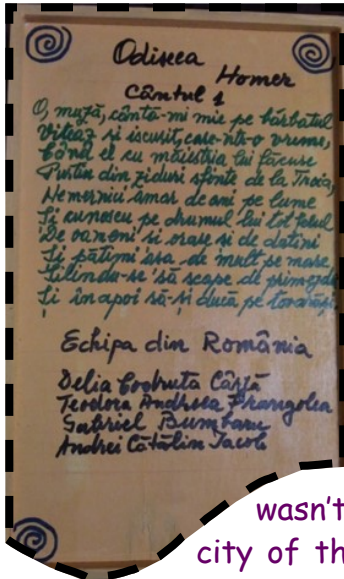 Odiseea
Homer
Cântul 1
O, muză, cântă-mi mie pe bărbatul
Viteaz și iscusit, care-ntr-o vreme,
Când el cu măiestria lui făcuse
Pustiu din ziduri sfinte de la Troia,
Nemernici amar de ani pe lume
Și cunoscu pe drumul lui tot felul
De oameni și orașe și de datini
Și pătimi așa de mult pe mare
Silindu-se să scape de primejdii
Și înapoi să-și ducă pe tovarăși
Echipa din România
Delia Codruța
Teodora Andreea
Gabriel Bumbaru
Andrei Cătălin Iacob
wasn't
city of th